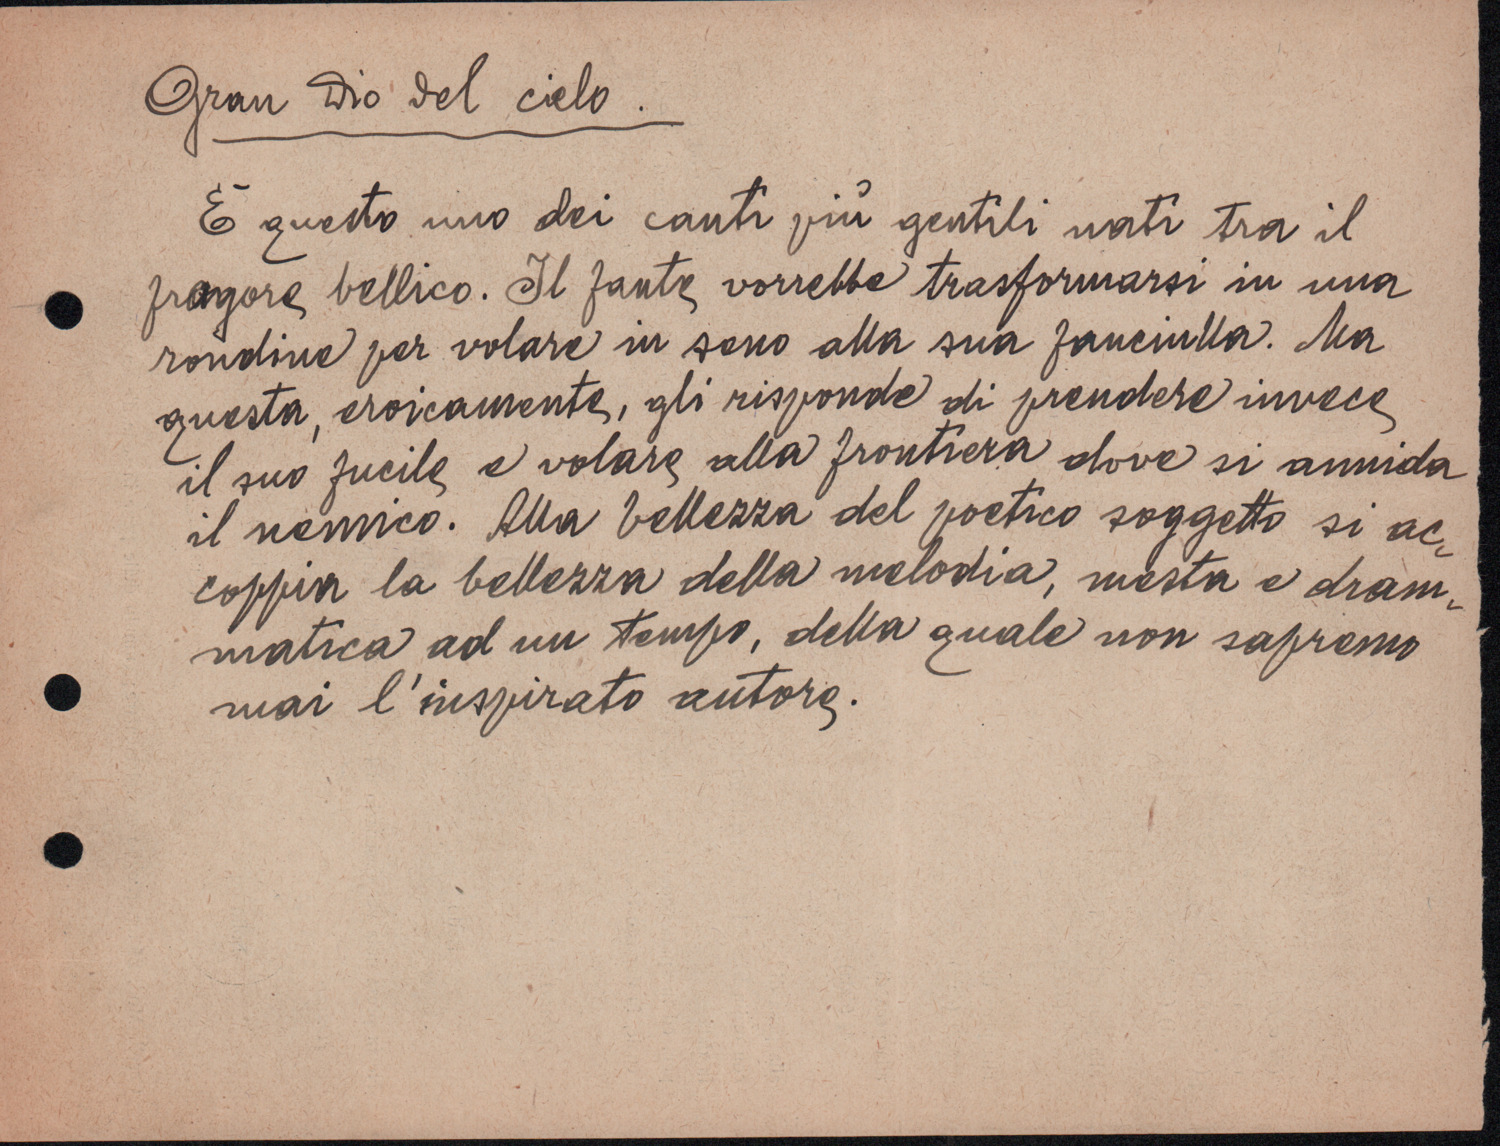 Gran Dio del cielo.
È questo uno dei canti più gentili nati tra il
fragore bellico. Il fante vorrebbe trasformarsi in una
rondine per volare in seno alla sua fanciulla. Ma
questa, eroicamente, gli risponde di prendere invece
il suo fucile e volare alla frontiera dove si annida
il nemico. Alla bellezza del poetico soggetto si ac-
coppia la bellezza della melodia, mesta e dram-
matica ad un tempo, della quale non sapremo
mai l'inspirato autore.